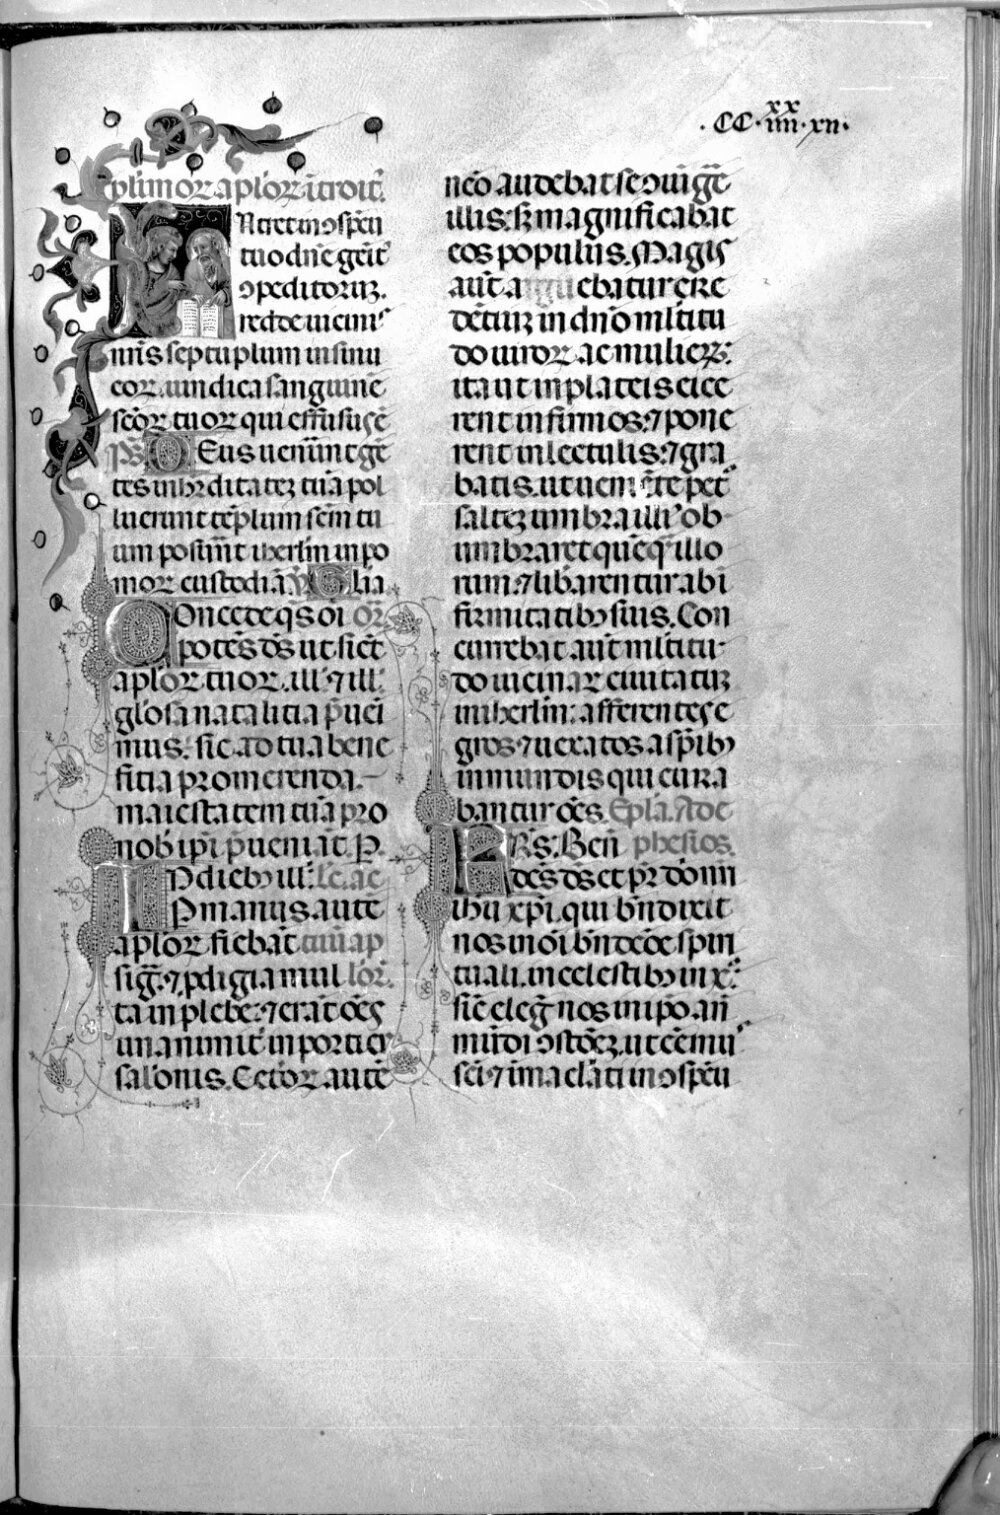 .CC.
xx
iiii.xii.
plīmoꝝ aplōꝝ ītroit̄.
Ntret in ɔspcū
tuo dn̄e gēit᷒
ɔpeditoruꝫ.
redde uicinis
nr̄is septuplum in sinu
eoꝝ. uindica sanguinē
scōꝝ tuoꝝ qui effusus ē
p̄s Deus uenūnt gē
tes in hr̄ditateꝫ tuā pol
luerunt tēplum scm̄ tu
um posūnt ihrlm̄ in po
moꝝ custodiā. ℣ Glīa
Oncede q̄s oī or̄
potēs ds̄ ut sic̄
aplōꝝ tuoꝝ. ill̄. ⁊ ill̄.
glōsa natalitia p̄uei
mus. sic̄ ad tua bene
ficia promerenda.
maiestatem tuā pro
nob̄ ip̄i p̄ueniāt. P.
N dieb᷒ ill̄. Lc̄. ac
P manus autē
aplōꝝ fiebāt tuū ap
sig̅. ⁊ ꝓdigia mul lōꝝ.
ta in plebe. ⁊ erāt oēs
unanimit̄ in porticu
salōnis. Cetōꝝ autē
neō audebat se ɔiūḡe
illis. sꝫ magnificabat
eos populus. Magis
aūt augebatur cre
dētiuꝫ in dn̄o ml̄titu
do uiroꝝ ac mulieꝝ.
ita ut in plateis eice
rent infirmos. ⁊ pone
rent in lectulis. ⁊ gra
batis. ut ueniēte pet̄
salteꝫ umbra illi᷒ ob
umbraret quēq̄ illo
rum. ⁊ lib̄arentur ab ī
firmitatib᷒ suis. Con
currebat aūt ml̄titu
do uicinaꝝ ciuitatuꝫ
in ihrlm̄. afferentes e
gros. ⁊ uexatos a sp̄ib᷒
inmundis qui cura
bantur oēs. Epl̄a. Ad e
RS. Ben̄ phesios.
dc̄s ds̄ et pr̄ dōni n̄
ih̄u xp̄i. qui bn̄dixit
nos in oī bn̄dcōe spiri
tuali. in celestib᷒ in x̄.
sic̄ eleḡ nos in ip̄o. an̄
mūdi ɔstōeꝫ. ut cēmu
scī. ⁊ īmaclāti in ɔspcū